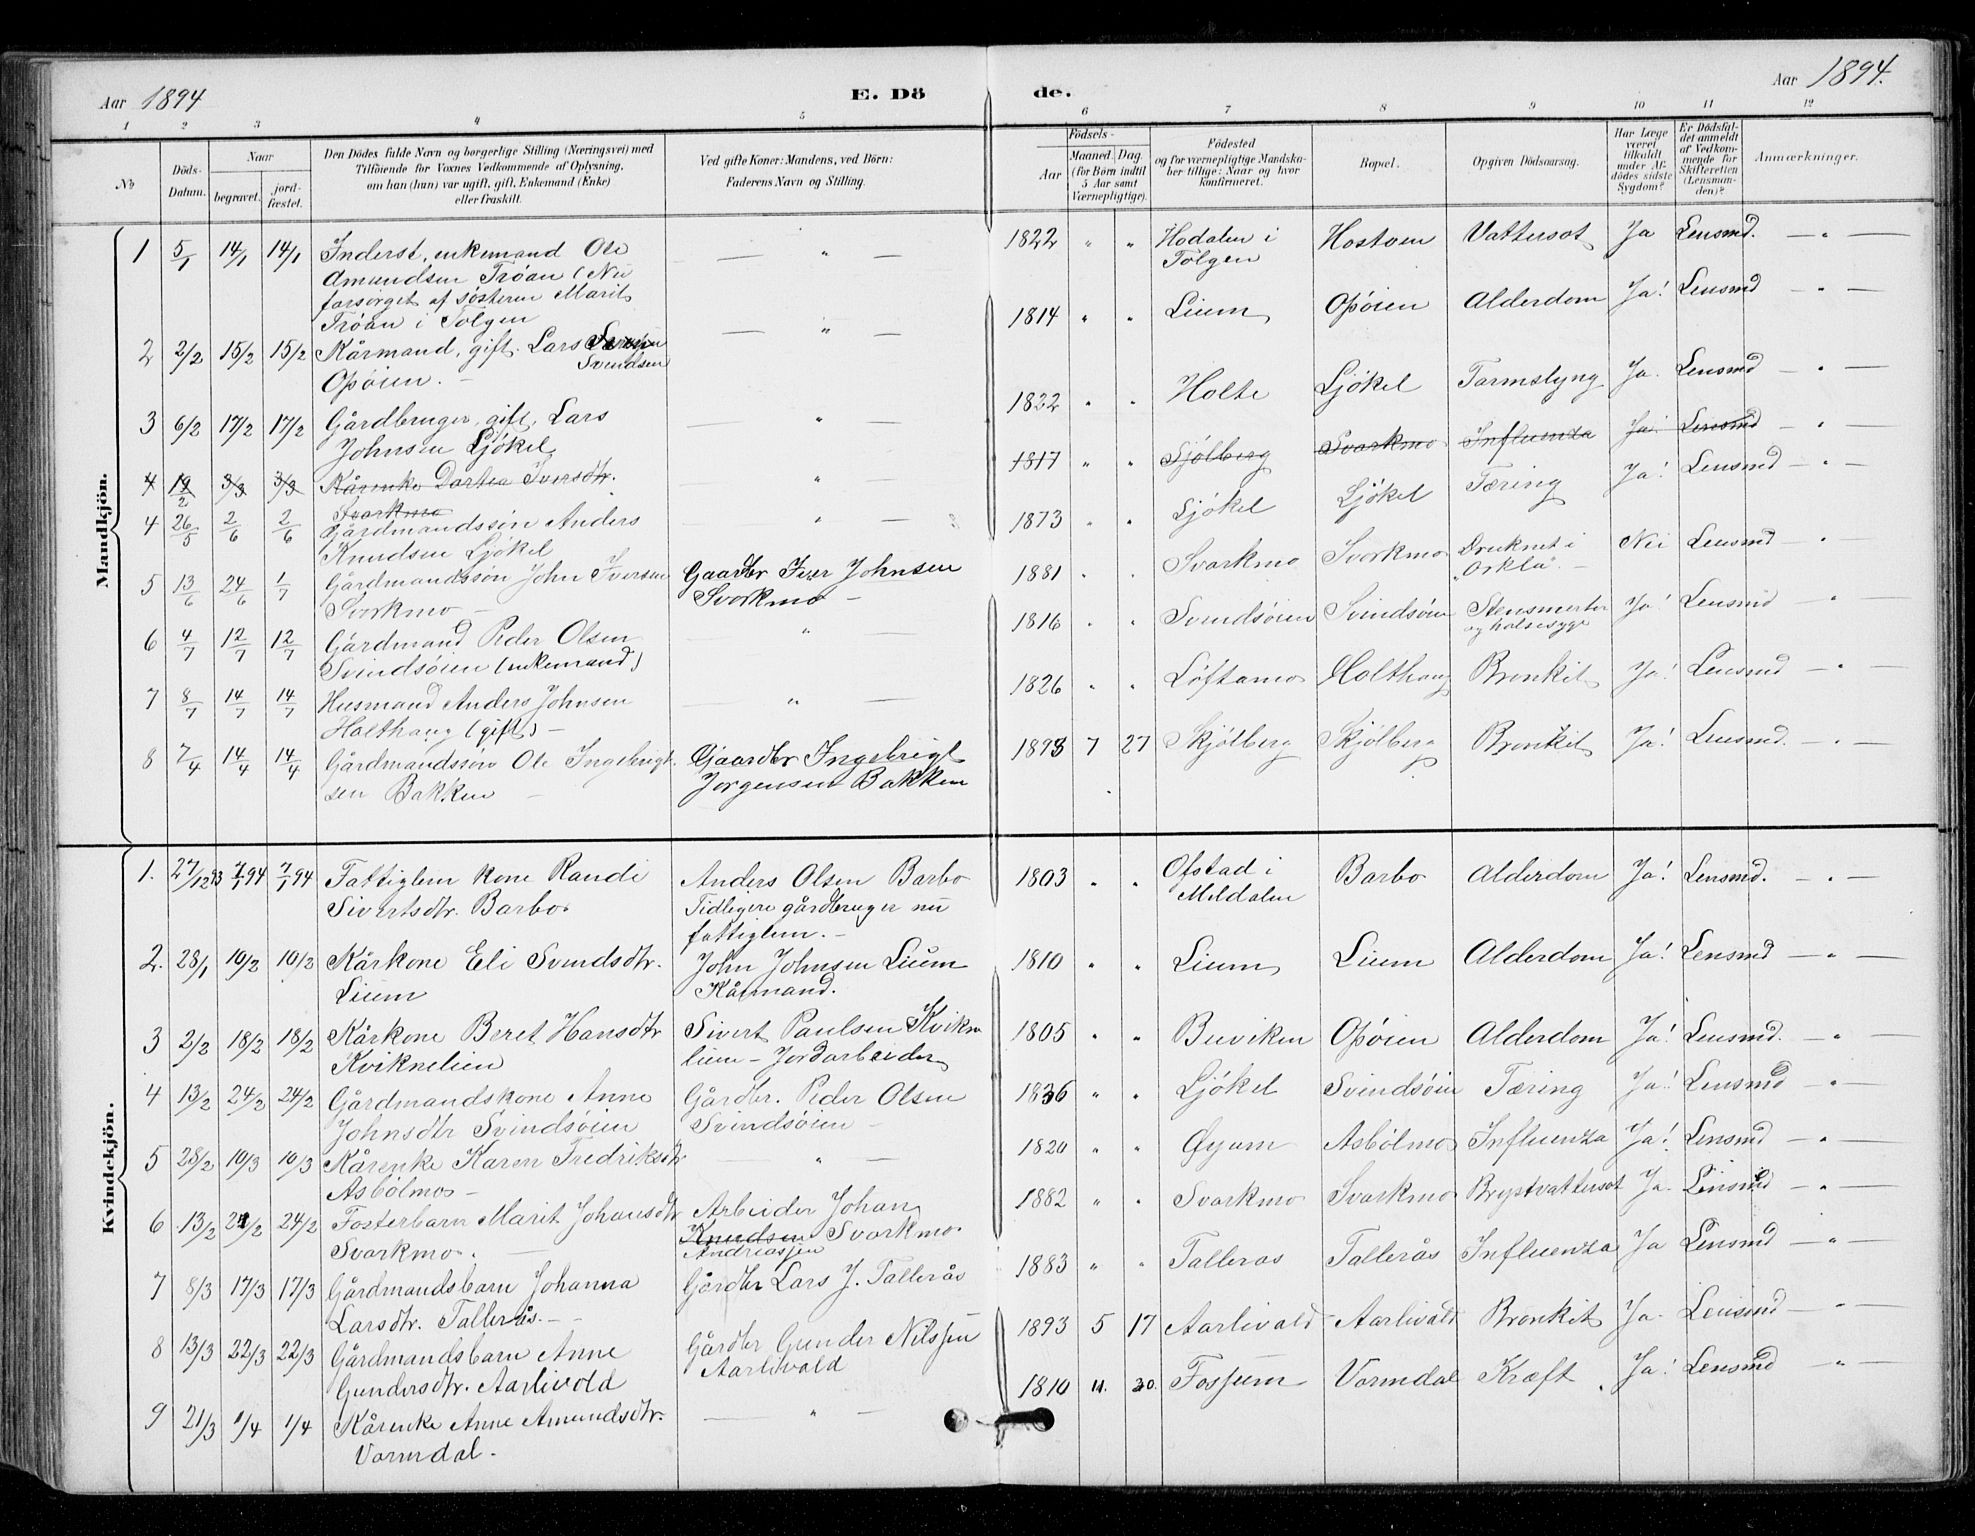 Aar 1894
E. Dö
de.
Aar 1894.
1 2 3 4 5 6 7 8 9 10 11 12
No
Döds-
Datum.
Naar
begravet.
jord-
fæstet.
Den Dödes fulde Navn og borgerlige Stilling (Næringsvei) med
Tilföiende for Voxnes Vedkommende af Oplysning,
om han (hun) var ugift, gift, Enkemand (Enke)
eller fraskilt.
Ved gifte Koner: Mandens, ved Börn:
Faderens Navn og Stilling.
Födsels-
Aar
Maaned. Dag.
(for Börn indtil
5 Aar samt
Værnepligtige).
Födested
og for værnepligtige Mandska-
ber tillige: Naar og hvor
konfirmeret.
Bopæl.
Opgiven Dödsaarsag.
Har Læge
været
tilkaldt
under Af-
dödes sidste
Sygdom?
Er Dödsfal-
det anmeldt
af Vedkom-
mende for
Skifteretten
(Lensman-
den)?
Anmærkninger.
Mandkjön.
1 5/1 14/1 14/1 Inderst, enkemand Ole — " — 1822 " " Hodalen i Hostoen Vattersot Ja Lensmd. — " —
Amundsen Trøan (Nu Tolgen
forsørget af søsteren Marit
Trøan i Tolgen
2 2/2 15/2 15/2 Kårmand, gift. Lars — " — 1814 " " Lium Opøien Alderdom Ja! Lensmd — " —
Svendsen
Opøien. —
3 6/2 17/2 17/2 Gårdbruger, gift, Lars — " — 1822 " " Holte Ljökel Tarmslyng Ja. Lensmd — " —
Johnsen Ljökel
4 19/2 3/3 3/3 Kårenke Dortea Iversdtr. — " — 1817 " " Sjölberg Svarkmo Influenza Ja! Lensmd — " —
Svarkmo
4 26/5 2/6 2/6 Gårdmandssön Anders — " — 1873 " " Ljökel Ljökel Tæring Ja! Lensmd — " —
Knudsen Ljökel
5 13/6 24/6 1/7 Gårdmandssön John Iversen Gaardbr Iver Johnsen 1881 " " Svarkmo Svorkmo Druknet i Nei Lensmd — " —
Svorkmo — Svorkmo — "Orkla". —
6 4/7 12/7 12/7 Gårdmand Peder Olsen — " — 1816 " " Svindsöien Svindsöien Stensmerter Ja! Lensmd — " —
Svindsöien (enkemand)
7 8/7 14/7 14/7 Husmand Anders Johnsen — " — 1826 " " Löftamo Holthaug Bronkit Ja! Lensmd — " —
Holthaug (gift) —
8 7/4 14/4 14/4 Gårdmandssön Ole Ingebrigt- Gaardbr Ingebrigt 1893 7 27 Skjölberg Skjölberg Bronkit Ja! Lensmd. — " —
sen Bakken — Jörgensen Bakken
Kvindekjön.
1. 27/12 93 7/1 94 7/1 94 Fattiglem kone Randi Anders Olsen Barbo 1803 " " Ofstad i Barbo Alderdom Ja! Lensmd. — " —
Sivertsdtr. Barbo. Tidligere gårdbruger nu Meldalen
fattiglem. —
2. 28/1 10/2 10/2 Kårkone Eli Svendsdtr. John Johnsen Lium 1810 " " Lium Lium Alderdom Ja! Lensmd — " —
Lium Kårmand.
3 2/2 18/2 18/2 Kårkone Beret Hansdtr Sivert Paulsen Kvikne 1805 " " Buviken Opöien Alderdom Ja! Lensmd. — " —
Kviknelien lien — Jordarbeider
4 13/2 24/2 24/2 Gårdmandskone Anne Gårdbr. Peder Olsen 1836 " " Ljökel Svindsöien Tæring Ja! Lensmd — " —
Johnsdtr Svindsöien Svindsöien —
5 28/2 10/3 10/3 Kårenke Karen Fredriksdtr — " — 1820 " " Øyum Asbölmo Influenza Ja! Lensmd — " —
Asbölmo —
6 13/2 24/2 24/2 Fosterbarn Marit Johansdtr Arbeider Johan 1882 " " Svarkmo Svarkmo Brystvattersot Ja. Lensmd — " —
Svarkmo. — Knudsen Svarkmo.
Andreassen
7 8/3 17/3 17/3 Gårdmandsbarn Johanna Gårdbr Lars J. Tallerås 1883 " " Talleras Tallerås Influenza Ja Lensmd — " —
Larsdtr. Tallerås. —
8 13/3 22/3 22/3 Gårdmandsbarn Anne Gårdbr Gunder Nilssen 1893 5 17 Aarlivold Aarlivold Bronkit Ja. Lensmd — " —
Gundersdtr. Aarlivold Aarlivold
9 21/3 1/4 1/4 Kårenke Anne Amundsdtr. — " — 1810 11. 30. Fossum Vormdal Kræft Ja! Lensmd — " —
Vormdal.